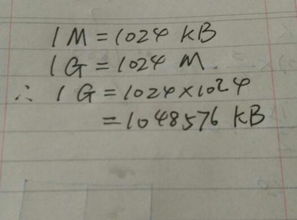 1 M = 1024 KB
1 G = 1024 M.
∴ 1 G = 1024 × 1024
= 1048576 KB